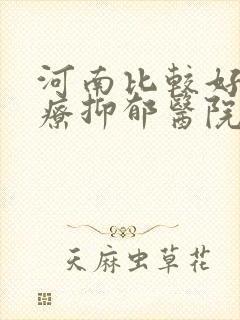 河南比較好
療抑郁醫院
天麻虫草花